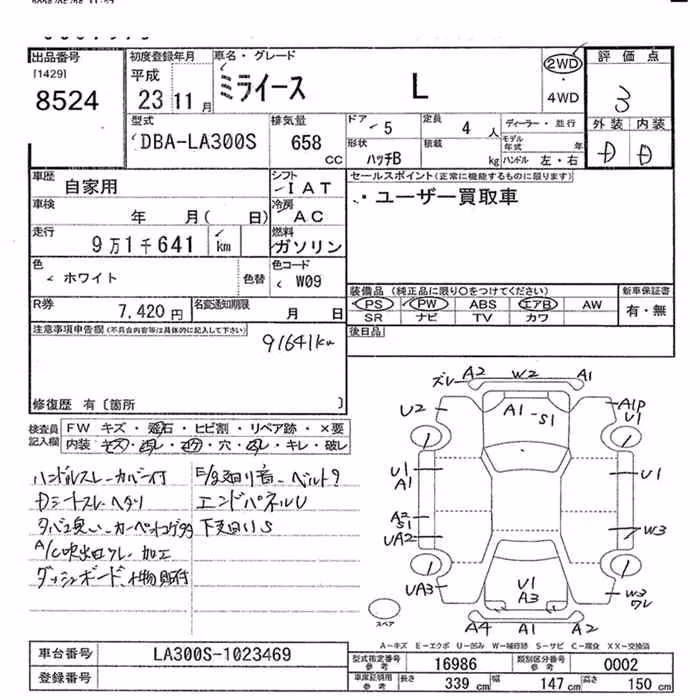 出品番号
[1429]
8524
初度登録年月
平成
23 11 月
車名・グレード
ミライース L
2WD
・
4WD
評価点
3
外装 内装
D D
型式
DBA-LA300S
排気量
658 CC
ドア
5
形状
ハッチB
定員
4 人
積載
kg
ディーラー・並行
モデル年式 年
ハンドル 左・右
車歴
自家用
シフト
IAT
車検
年 月( 日)
冷房
AC
走行
9万1千641 km
燃料
ガソリン
色
ホワイト
色替
色コード
W09
R券
7,420円
名変通知期限
月 日
セールスポイント(正常に機能するものに限ります)
・ユーザー買取車
装備品(純正品に限り○をつけてください)
PS PW ABS エアB AW
SR ナビ TV カワ
新車保証書
有・無
後日品
注意事項申告欄(不具合内容等は具体的に記入して下さい)
91641km
修復歴 有〔箇所 〕
検査員記入欄
FW キズ・飛石・ヒビ割・リペア跡・×要
内装 キズ・汚レ・コゲ・穴・ヌレ・キレ・破レ
ハンドルスレ-カバー付
Dシートスレ-ヘタリ
タバコ臭い-カーペットコゲ多
A/C吹出口ワレ-加工
ダッシュボード小物貼付
E/g廻り音-ベルト?
エンドパネルU
下廻りS
ズレ A2 W2 A1
U2 A1 S1 A1P U1
U1 A1 U1
A2 S1
UA2 W3
UA3 U1 A3 W3 ワレ
A4 A1 A2
スペア
A-キズ E-エクボ U-凹み W-補修跡 S-サビ C-腐食 XX-交換済
車台番号
LA300S-1023469
登録番号
型式指定番号 参考
16986
類別区分番号 参考
0002
車庫証明用 参考
長さ 339 cm 幅 147 cm 高さ 150 cm